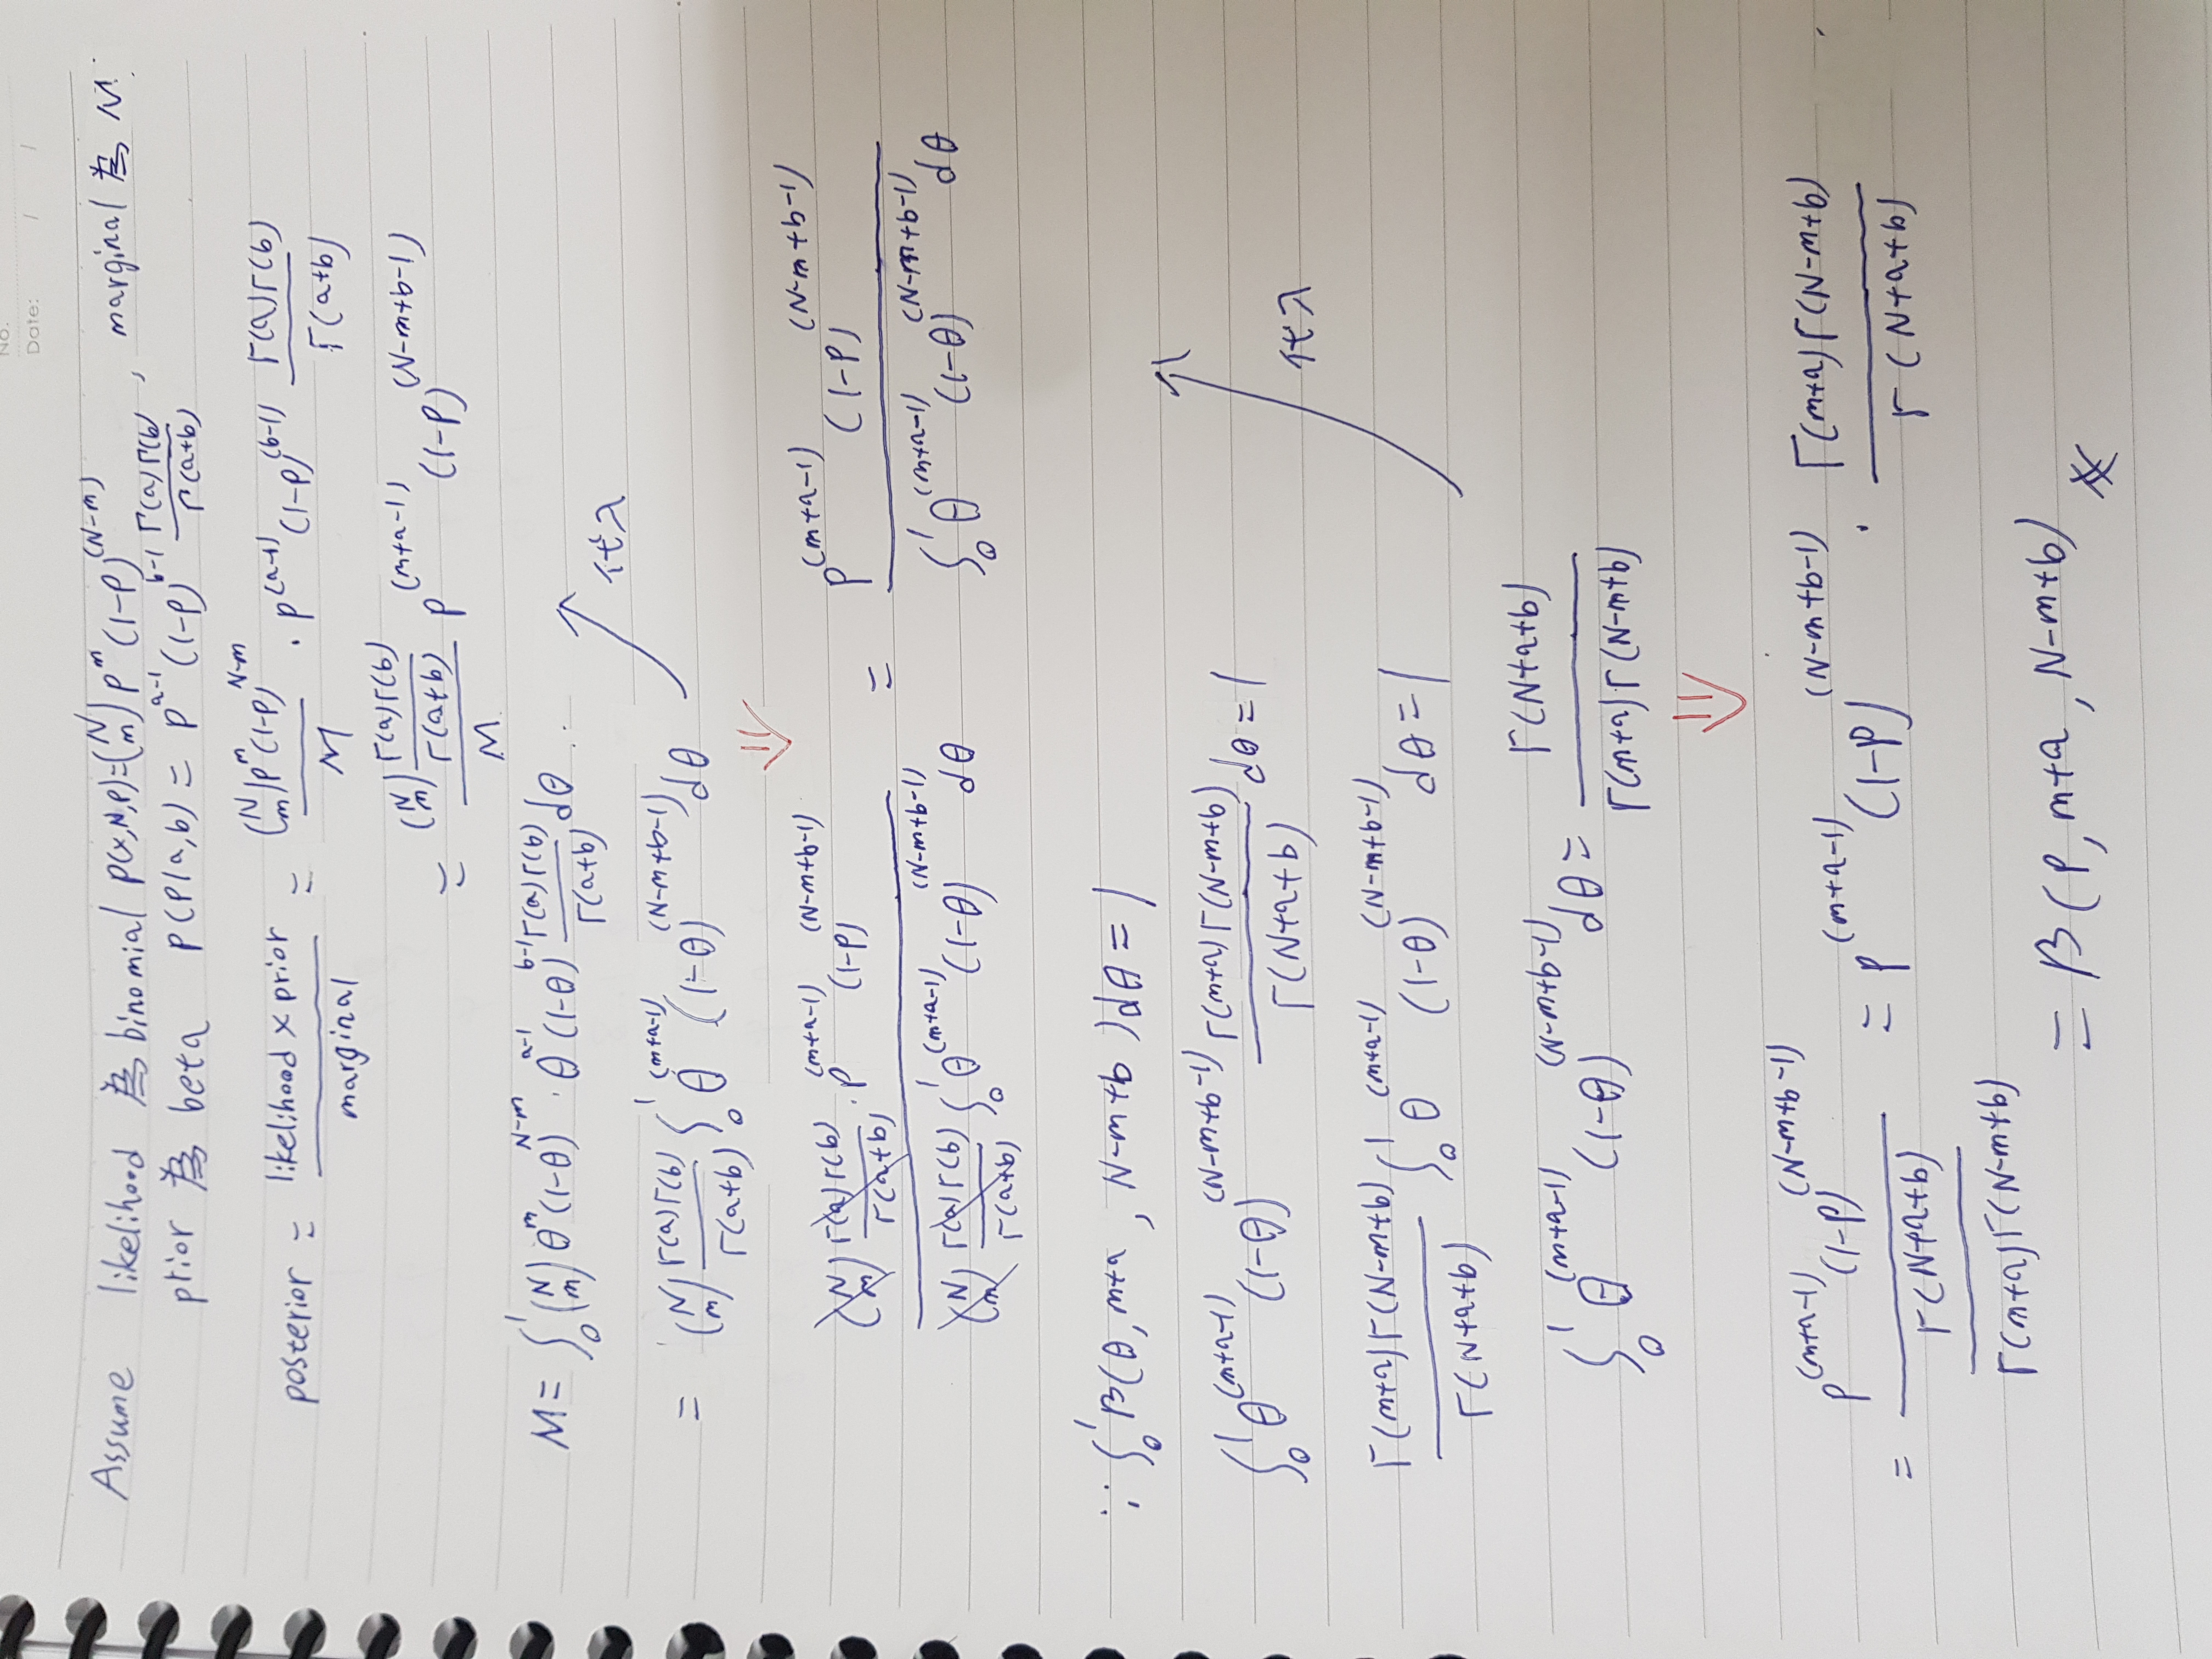 No.
Date: / /
Assume likelihood 為 binomial p(x,N,p)=(N m) p^m (1-p)^(N-m) , marginal 為 M
prior 為 beta p(p|a,b) = p^a-1 (1-p)^b-1 Γ(a)Γ(b)/Γ(a+b)
posterior = likelihood × prior / marginal = (N m)p^m(1-p)^N-m / M · p^(a-1) (1-p)^(b-1) Γ(a)Γ(b) / Γ(a+b)
= (N m) Γ(a)Γ(b)/Γ(a+b) / M p^(m+a-1) (1-p)^(N-m+b-1)
M = ∫₀¹ (N m) θ^m (1-θ)^N-m · θ^a-1 (1-θ)^b-1 Γ(a)Γ(b)/Γ(a+b) dθ
代入
= (N m) Γ(a)Γ(b)/Γ(a+b) ∫₀¹ θ^(m+a-1) (1-θ)^(N-m+b-1) dθ
⇓
(N m) Γ(a)Γ(b)/Γ(a+b) · p^(m+a-1) (1-p)^(N-m+b-1) / (N m) Γ(a)Γ(b)/Γ(a+b) ∫₀¹ θ^(m+a-1) (1-θ)^(N-m+b-1) dθ = p^(m+a-1) (1-p)^(N-m+b-1) / ∫₀¹ θ^(m+a-1) (1-θ)^(N-m+b-1) dθ
∵ ∫₀¹ β(θ, m+a, N-m+b) dθ = 1
∫₀¹ θ^(m+a-1) (1-θ)^(N-m+b-1) Γ(m+a)Γ(N-m+b) / Γ(N+a+b) dθ = 1
代入
Γ(m+a)Γ(N-m+b) / Γ(N+a+b) ∫₀¹ θ^(m+a-1) (1-θ)^(N-m+b-1) dθ = 1
∫₀¹ θ^(m+a-1) (1-θ)^(N-m+b-1) dθ = Γ(N+a+b) / Γ(m+a)·Γ(N-m+b)
⇓
= p^(m+a-1) (1-p)^(N-m+b-1) / Γ(N+a+b) / Γ(m+a)Γ(N-m+b) = p^(m+a-1) (1-p)^(N-m+b-1) · Γ(m+a)Γ(N-m+b) / Γ(N+a+b)
= β(p, m+a, N-m+b)